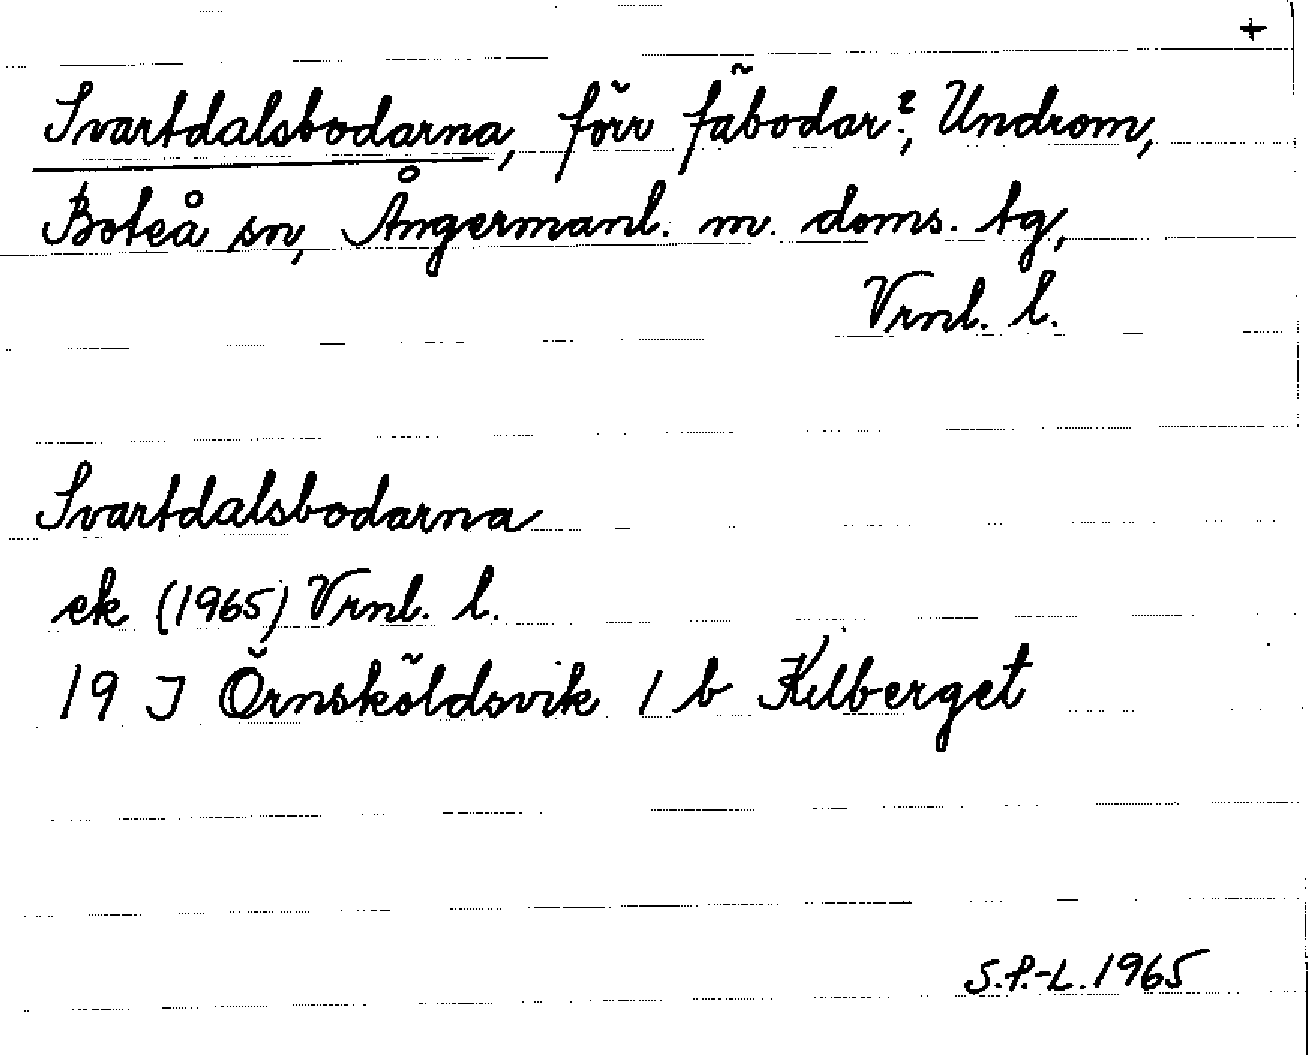 +
Svartdalsbodarna, förr fäbodar?, Undrom,
Boteå sn, Ångermanl. m. doms. tg,
Vrnl. l.
Svartdalsbodarna
ek (1965) Vrnl. l.
19 J Örnsköldsvik 1 b Kilberget
S.P.-L. 1965